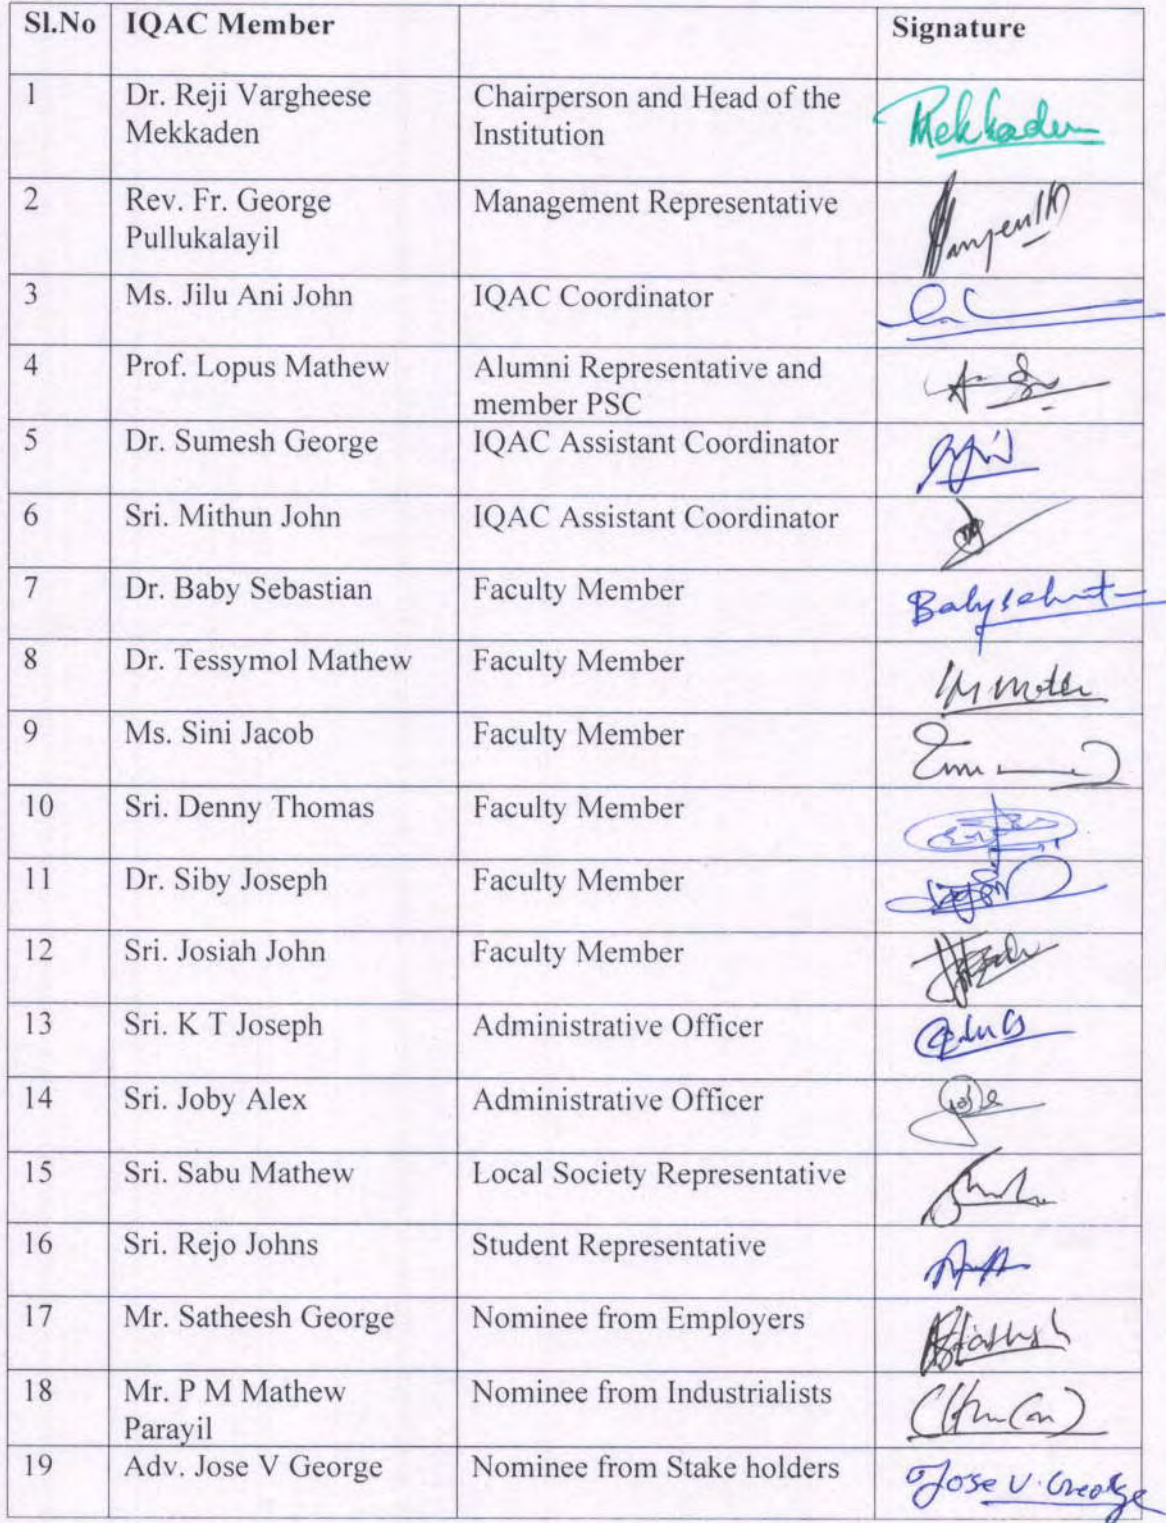 Sl.No IQAC Member Signature
1 Dr. Reji Vargheese Chairperson and Head of the Mekkaden
Mekkaden Institution
2 Rev. Fr. George Management Representative
Pullukalayil
3 Ms. Jilu Ani John IQAC Coordinator
4 Prof. Lopus Mathew Alumni Representative and
member PSC
5 Dr. Sumesh George IQAC Assistant Coordinator
6 Sri. Mithun John IQAC Assistant Coordinator
7 Dr. Baby Sebastian Faculty Member
8 Dr. Tessymol Mathew Faculty Member
9 Ms. Sini Jacob Faculty Member
10 Sri. Denny Thomas Faculty Member
11 Dr. Siby Joseph Faculty Member
12 Sri. Josiah John Faculty Member
13 Sri. K T Joseph Administrative Officer
14 Sri. Joby Alex Administrative Officer
15 Sri. Sabu Mathew Local Society Representative
16 Sri. Rejo Johns Student Representative
17 Mr. Satheesh George Nominee from Employers
18 Mr. P M Mathew Nominee from Industrialists
Parayil
19 Adv. Jose V George Nominee from Stake holders Jose V. George